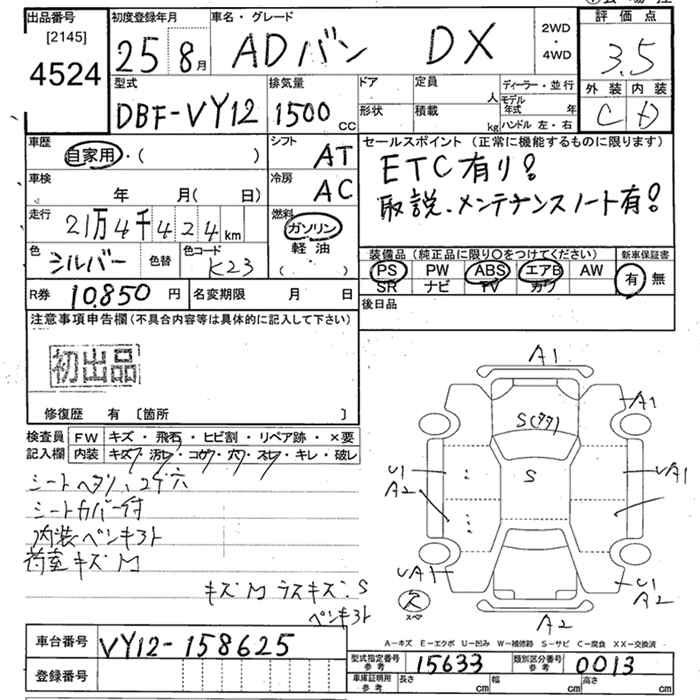 出品番号
[2145]
4524
初度登録年月
25 8月
車名・グレード
ADバン DX
2WD
・
4WD
評価点
3.5
外装 内装
C D
型式
DBF-VY12
排気量
1500 CC
ドア
形状
定員 人
積載 kg
ディーラー・並行
モデル年式 年
ハンドル 左・右
車歴
自家用・( )
シフト
AT
車検
年 月( 日)
冷房
AC
走行
21万4千424km
燃料
ガソリン
軽油
( . )
色
シルバー
色替
色コード
K23
セールスポイント (正常に機能するものに限ります)
ETC有り!
取説、メンテナンスノート有!
装備品(純正品に限り○をつけてください)
PS PW ABS エアB AW
SR ナビ TV カワ
新車保証書
有 無
R券 10.850 円
名変期限 月 日
後日品
注意事項申告欄(不具合内容等は具体的に記入して下さい)
初出品
修復歴 有 [箇所 ]
検査員記入欄
FW キズ・飛石・ヒビ割・リペア跡・×要
内装 キズ・汚レ・コゲ・穴・スレ・キレ・破レ
シートヘタリ、コゲ穴
シートカバー付
内装ペンキヨト
荷室キズM
キズM ラスキズ:S
ペンキヨト
A1
A1
S(タタ)
S
U1
A2
UA1
UA1
U1
A2
A2
スペア
A-キズ E-エクボ U-凹み W-補修跡 S-サビ C-腐食 XX-交換済
車台番号
VY12-158625
登録番号
型式指定番号 参考
15633
類別区分番号 参考
0013
車庫証明用 参考
長さ cm
幅 cm
高さ cm